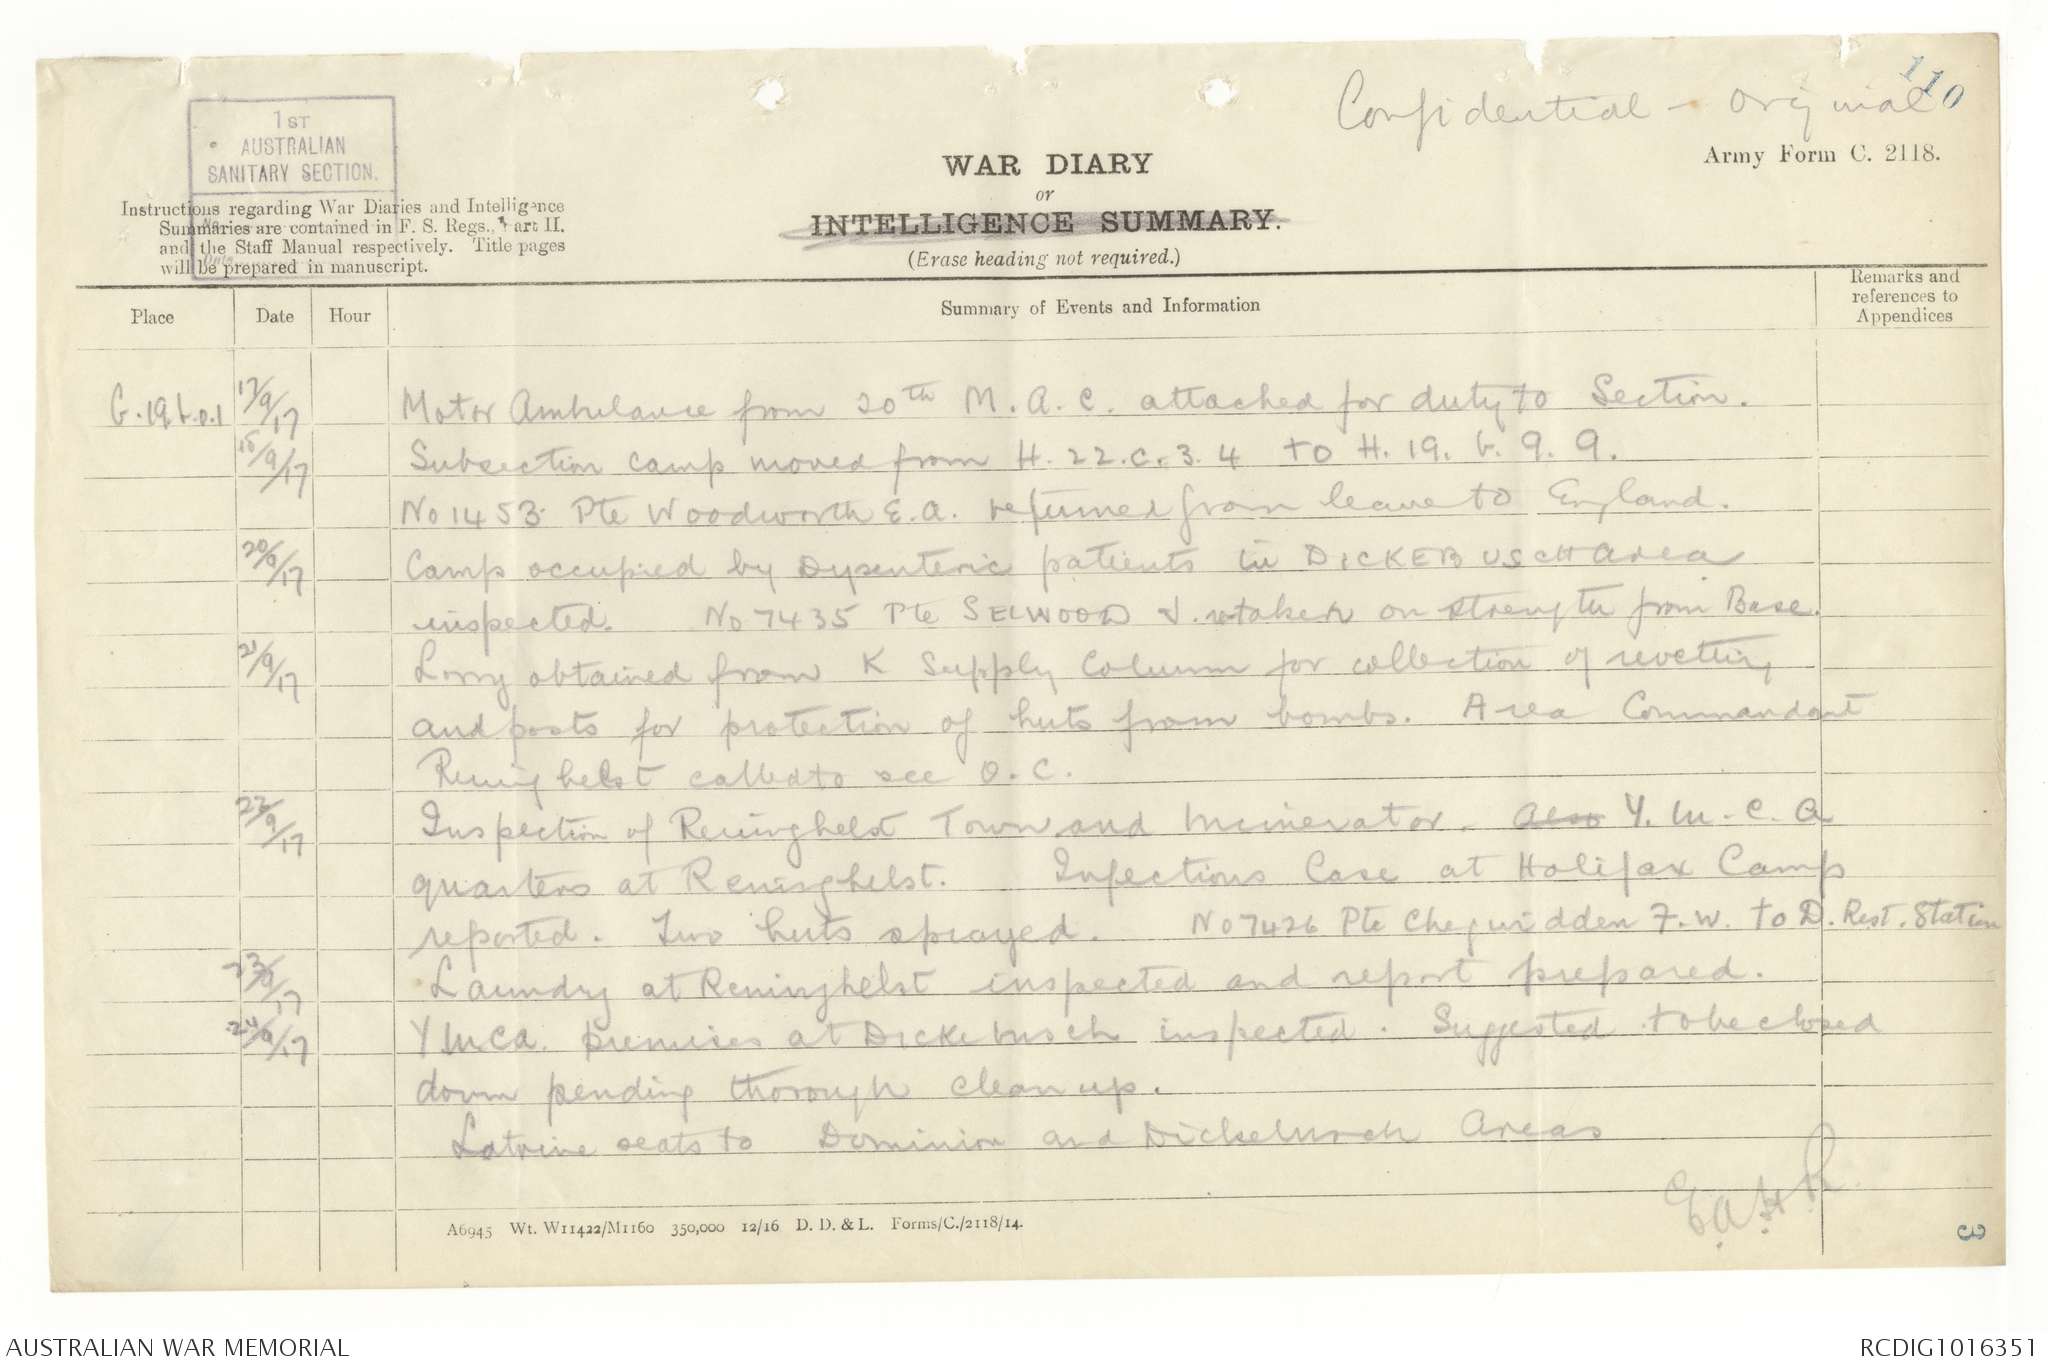 110
Confidential - Original
1ST
AUSTRALIAN
SANITARY SECTION.
No
Date
Army Form C. 2118.
WAR DIARY
or
INTELLIGENCE SUMMARY.
(Erase heading not required.)
Instructions regarding War Diaries and Intelligence
Summaries are contained in F. S. Regs., Part II.
and the Staff Manual respectively. Title pages
will be prepared in manuscript.
Place Date Hour Summary of Events and Information Remarks and references to Appendices
G.19.b.0.1 17/9/17 Motor Ambulance from 20th M.A.C. attached for duty to Section.
18/9/17 Subsection camp moved from H.22.c.3.4 to H.19.b.9.9.
No 1453 Pte Woodworth E.A. returned from leave to England.
20/9/17 Camp occupied by Dysenteric patients in DICKEBUSCH Area
inspected. No 7435 Pte SELWOOD J. retaken on strength from Base.
21/9/17 Lorry obtained from K Supply Column for collection of revetting
and posts for protection of huts from bombs. Area Commandant
Reninghelst called to see O.C.
22/9/17 Inspection of Reninghelst Town and Incinerator. Also Y.M.C.A
quarters at Reninghelst. Infectious Case at Halifax Camp
reported. Two huts sprayed. No 7426 Pte Chegwidden F.W. to D. Rest. Station
23/9/17 Laundry at Reninghelst inspected and report prepared.
24/9/17 YMCA. premises at Dickebusch inspected. Suggested to be closed
down pending thorough clean up.
Latrine seats to Dominion and Dickebusch Areas
E.A.H.R.
A6945 Wt. W11422/M1160 350,000 12/16 D. D. & L. Forms/C./2118/14.
3
AUSTRALIAN WAR MEMORIAL RCDIG1016351